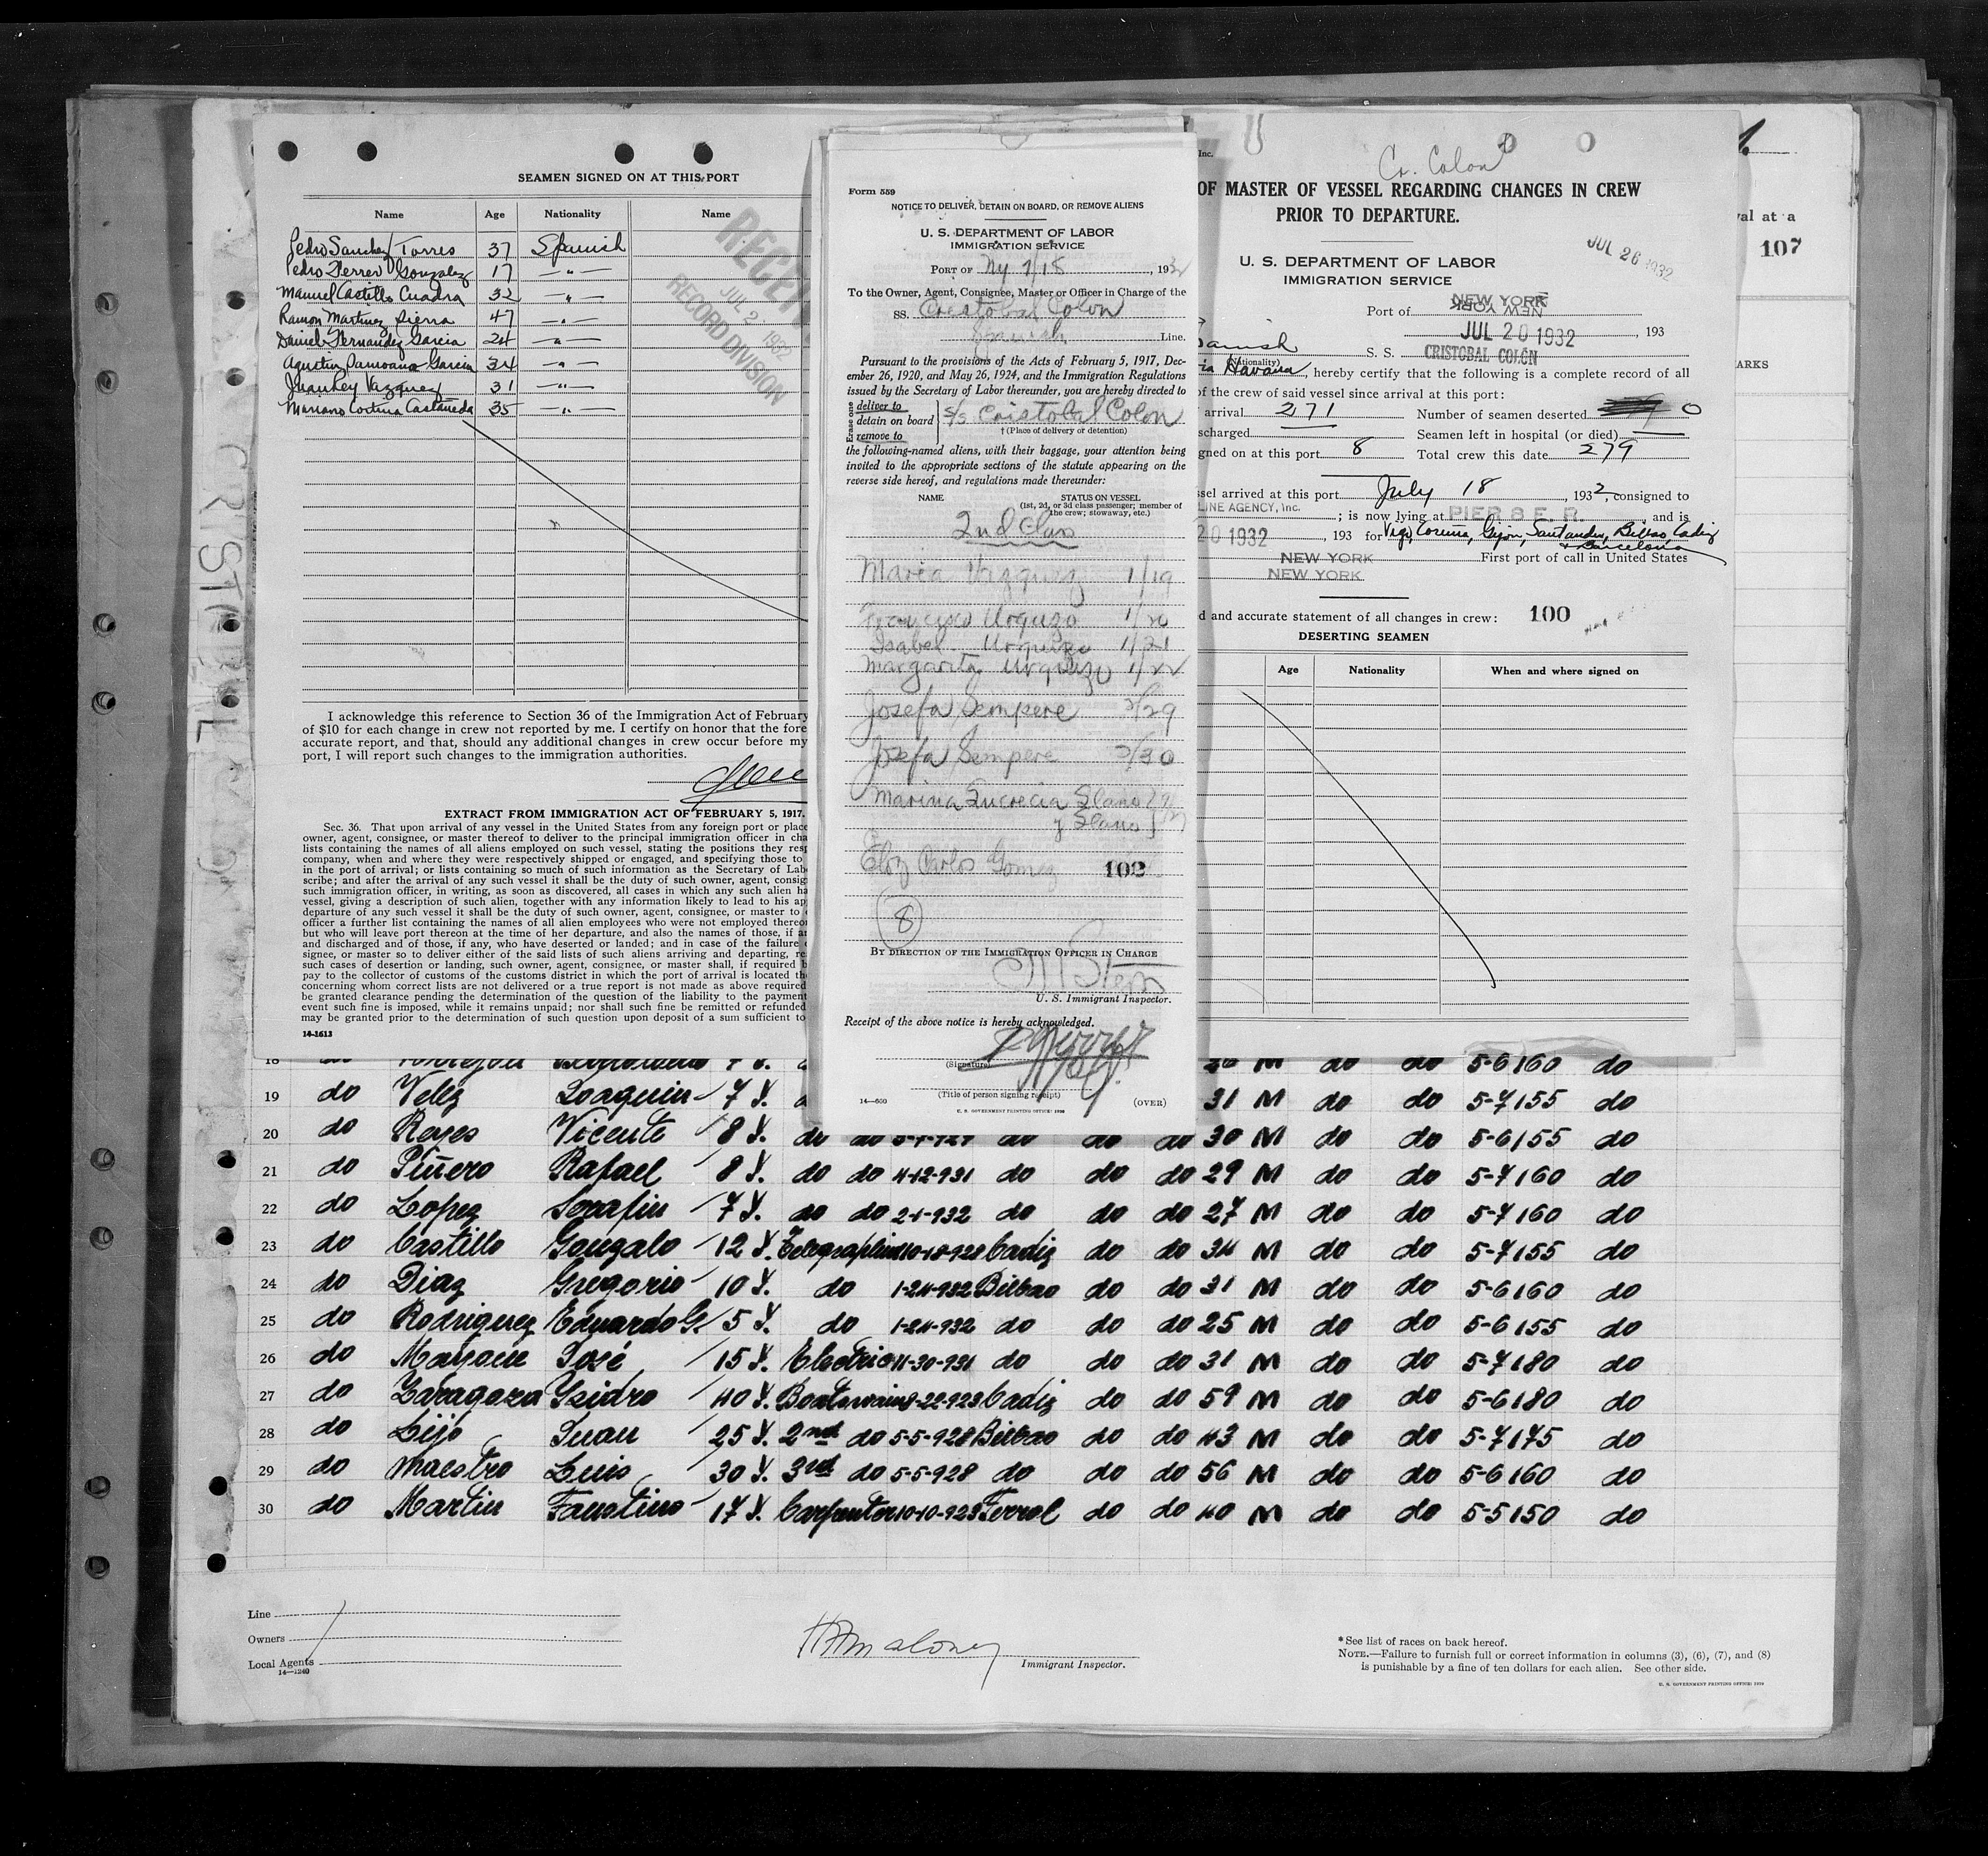 SEAMEN SIGNED ON AT THIS PORT
Name Age Nationality Name
Pedro Sanchez Torres 37 Spanish
Pedro Ferrer Gonzalez 17 — " —
Manuel Castillo Cuadra 32 — " —
Ramon Martinez Sierra 47 — " —
Daniel Fernandez Garcia 24 — " —
Agustin Garcia 34 — " —
Juan Rey Vazquez 31 — " —
Mariano Cortina Castañeda 35 — " —
JUL 2 1932
RECORD DIVISION
I acknowledge this reference to Section 36 of the Immigration Act of February
of $10 for each change in crew not reported by me. I certify on honor that the fore
accurate report, and that, should any additional changes in crew occur before my
port, I will report such changes to the immigration authorities.
EXTRACT FROM IMMIGRATION ACT OF FEBRUARY 5, 1917.
Sec. 36. That upon arrival of any vessel in the United States from any foreign port or place
owner, agent, consignee, or master thereof to deliver to the principal immigration officer in cha
lists containing the names of all aliens employed on such vessel, stating the positions they resp
company, when and where they were respectively shipped or engaged, and specifying those to
in the port of arrival; or lists containing so much of such information as the Secretary of Lab
scribe; and after the arrival of any such vessel it shall be the duty of such owner, agent, consig
such immigration officer, in writing, as soon as discovered, all cases in which any such alien ha
vessel, giving a description of such alien, together with any information likely to lead to his ap
departure of any such vessel it shall be the duty of such owner, agent, consignee, or master to
officer a further list containing the names of all alien employees who were not employed thereo
but who will leave port thereon at the time of her departure, and also the names of those, if a
and discharged and of those, if any, who have deserted or landed; and in case of the failure
signee, or master so to deliver either of the said lists of such aliens arriving and departing, re
such cases of desertion or landing, such owner, agent, consignee, or master shall, if required b
pay to the collector of customs of the customs district in which the port of arrival is located th
concerning whom correct lists are not delivered or a true report is not made as above required
be granted clearance pending the determination of the question of the liability to the payment
event such fine is imposed, while it remains unpaid; nor shall such fine be remitted or refunded
may be granted prior to the determination of such question upon deposit of a sum sufficient to
14-1613
Form 559
NOTICE TO DELIVER, DETAIN ON BOARD, OR REMOVE ALIENS
U. S. DEPARTMENT OF LABOR
IMMIGRATION SERVICE
PORT OF Ny 7/18, 1932
To the Owner, Agent, Consignee, Master or Officer in Charge of the
SS. Cristobal Colon
Spanish Line.
Pursuant to the provisions of the Acts of February 5, 1917, Dec-
ember 26, 1920, and May 26, 1924, and the Immigration Regulations
issued by the Secretary of Labor thereunder, you are hereby directed to
Erase one
deliver to
detain on board S/S Cristobal Colon
remove to † (Place of delivery or detention)
the following-named aliens, with their baggage, your attention being
invited to the appropriate sections of the statute appearing on the
reverse side hereof, and regulations made thereunder:
NAME STATUS ON VESSEL
(1st, 2d, or 3d class passenger; member of
the crew; stowaway, etc.)
2nd Class
Maria Vazquez 1/19
Francisco Urquizo 1/20
Isabel Urquizo 1/21
Margarita Urquizo 1/22
Josefa Sempere 2/29
Josefa Sempere 2/30
Marina Lucrecia Llano
y Llano
Eloy Carlos Gomez 102
8
BY DIRECTION OF THE IMMIGRATION OFFICER IN CHARGE
U. S. Immigrant Inspector.
Receipt of the above notice is hereby acknowledged.
(Signature)
(Title of person signing receipt)
14—660 (OVER)
U. S. GOVERNMENT PRINTING OFFICE: 1930
Inc.
Cr. Colon
OF MASTER OF VESSEL REGARDING CHANGES IN CREW
PRIOR TO DEPARTURE.
JUL 26 1932
U. S. DEPARTMENT OF LABOR
IMMIGRATION SERVICE
Port of NEW YORK
NEW YORK
JUL 20 1932, 193
Spanish S. S. CRISTOBAL COLÓN
(Nationality)
via Havana, hereby certify that the following is a complete record of all
of the crew of said vessel since arrival at this port:
arrival 271 Number of seamen deserted 0
scharged Seamen left in hospital (or died) —
gned on at this port 8 Total crew this date 279
ssel arrived at this port July 18, 1932, consigned to
LINE AGENCY, Inc.; is now lying at PIER 8 E. R. and is
20 1932, 193 for Vigo, Coruña, Gijon, Santander, Bilbao, Cadiz
& Barcelona
NEW YORK First port of call in United States
NEW YORK
d and accurate statement of all changes in crew: 100
DESERTING SEAMEN
Age Nationality When and where signed on
1.
val at a
107
ARKS
CRISTOBAL
18 do 7 Y. 36 M do do 5-6 160 do
19 do Velez Joaquin 7 Y. 31 M do do 5-7 155 do
20 do Reyes Vicente 8 Y. do do do do do 30 M do do 5-6 155 do
21 do Piñero Rafael 8 Y. do do 4-12-931 do do do 29 M do do 5-7 160 do
22 do Lopez Serafin 7 Y. do do 2-1-932 do do do 27 M do do 5-7 160 do
23 do Castillo Gonzalo 12 Y. Telegraphist 10-18-928 Cadiz do do 34 M do do 5-7 155 do
24 do Diaz Gregorio 10 Y. do 1-24-932 Bilbao do do 31 M do do 5-6 160 do
25 do Rodriguez Eduardo G. 5 Y. do 1-24-932 do do do 25 M do do 5-6 155 do
26 do José 15 Y. Electric 11-30-931 do do do 31 M do do 5-7 180 do
27 do Zaragoza Isidro 40 Y. Boatswain 9-22-923 Cadiz do do 59 M do do 5-6 180 do
28 do Lijó Juan 25 Y. 2nd do 5-5-928 Bilbao do do 43 M do do 5-7 175 do
29 do Maestro Luis 30 Y. 3rd do 5-5-928 do do do 56 M do do 5-6 160 do
30 do Martin Faustino 17 Y. Carpenter 10-10-923 Ferrol do do 40 M do do 5-5 150 do
Line
Owners
Local Agents
14—1240
Maloney
Immigrant Inspector.
* See list of races on back hereof.
NOTE.—Failure to furnish full or correct information in columns (3), (6), (7), and (8)
is punishable by a fine of ten dollars for each alien. See other side.
U. S. GOVERNMENT PRINTING OFFICE: 1930